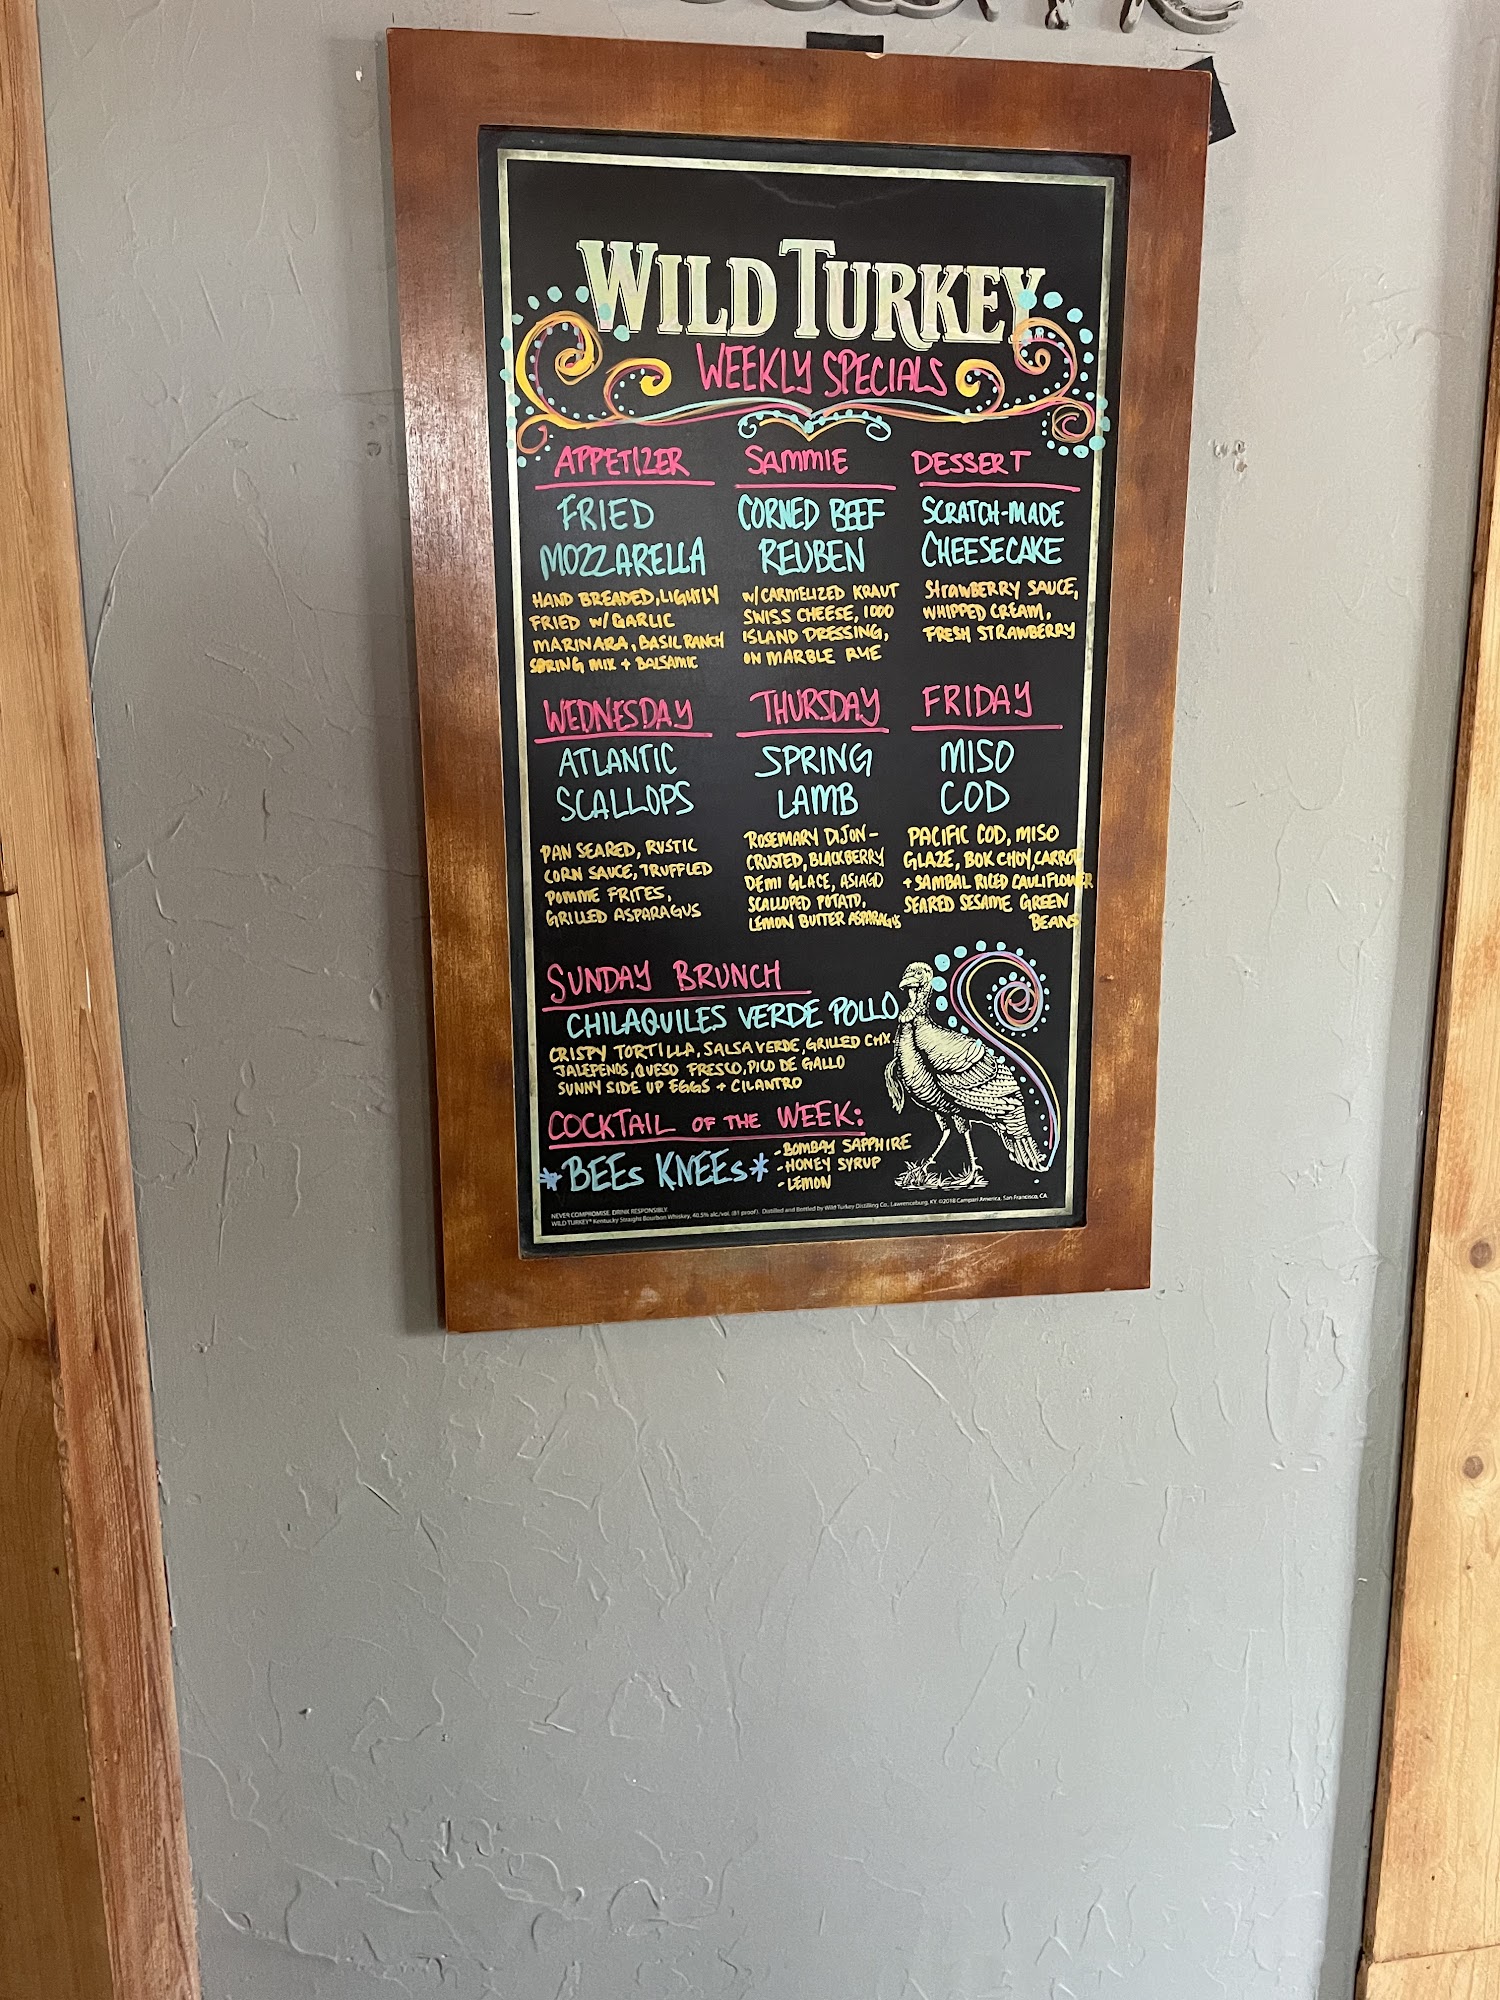 WILD TURKEY
WEEKLY SPECIALS
APPETIZER
FRIED
MOZZARELLA
HAND BREADED, LIGHTLY
FRIED W/ GARLIC
MARINARA, BASIL RANCH
SPRING MIX + BALSAMIC
SAMMIE
CORNED BEEF
REUBEN
W/ CARMELIZED KRAUT
SWISS CHEESE, 1000
ISLAND DRESSING,
ON MARBLE RYE
DESSERT
SCRATCH-MADE
CHEESECAKE
STRAWBERRY SAUCE,
WHIPPED CREAM,
FRESH STRAWBERRY
WEDNESDAY
ATLANTIC
SCALLOPS
PAN SEARED, RUSTIC
CORN SAUCE, TRUFFLED
POMME FRITES,
GRILLED ASPARAGUS
THURSDAY
SPRING
LAMB
ROSEMARY DIJON-
CRUSTED, BLACKBERRY
DEMI GLACE, ASIAGO
SCALLOPED POTATO,
LEMON BUTTER ASPARAGUS
FRIDAY
MISO
COD
PACIFIC COD, MISO
GLAZE, BOK CHOY, CARROT
+ SAMBAL RICED CAULIFLOWER
SEARED SESAME GREEN
BEANS
SUNDAY BRUNCH
CHILAQUILES VERDE POLLO
CRISPY TORTILLA, SALSA VERDE, GRILLED CHX.
JALEPENOS, QUESO FRESCO, PICO DE GALLO
SUNNY SIDE UP EGGS + CILANTRO
COCKTAIL OF THE WEEK:
*BEEs KNEEs*
-BOMBAY SAPPHIRE
-HONEY SYRUP
-LEMON
NEVER COMPROMISE. DRINK RESPONSIBLY.
WILD TURKEY® Kentucky Straight Bourbon Whiskey, 40.5% alc./vol. (81 proof). Distilled and Bottled by Wild Turkey Distilling Co., Lawrenceburg, KY. ©2018 Campari America, San Francisco, CA.